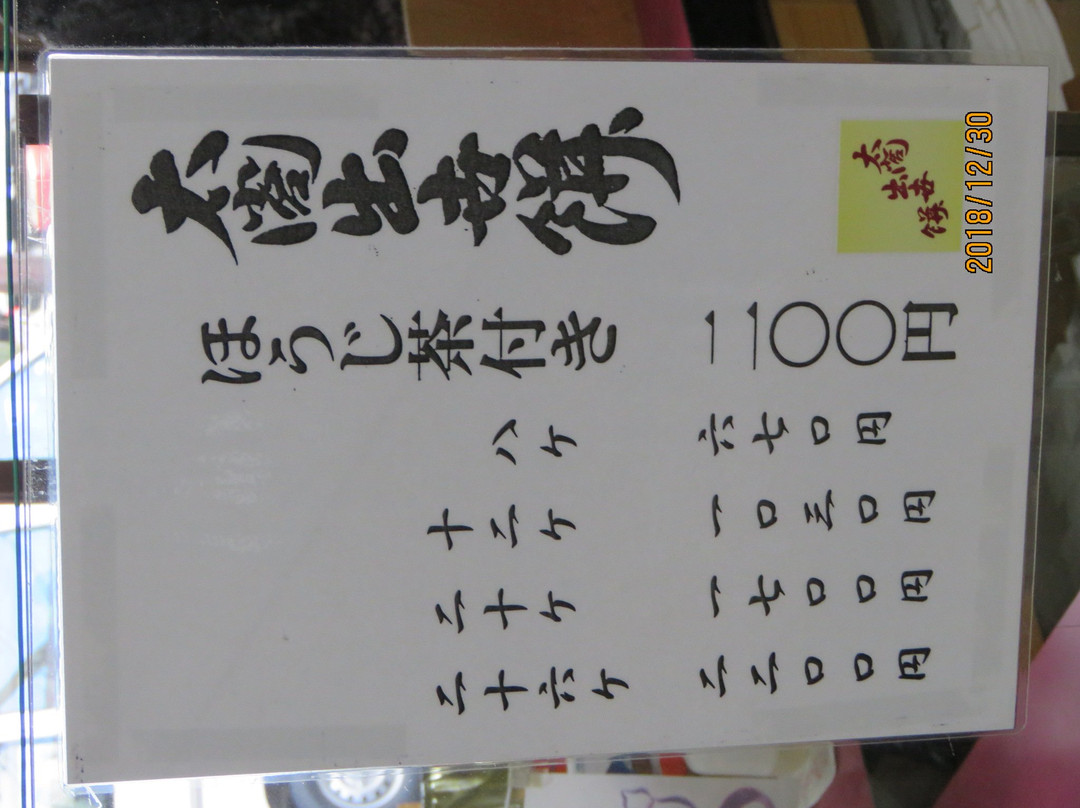 太閤出世餅
ほうじ茶付き 二〇〇円
八ケ 六七〇円
十二ケ 一〇三〇円
二十ケ 一七〇〇円
二十六ケ 二二〇〇円
太閤出世餅
2018/12/30